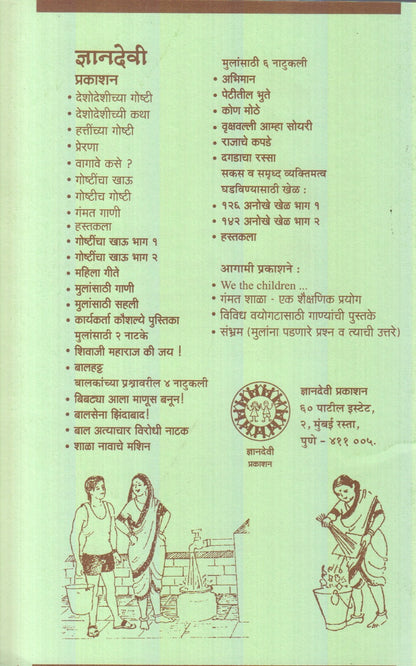 ज्ञानदेवी
प्रकाशन
• देशोदेशीच्या गोष्टी
• देशोदेशीच्यी कथा
• हत्तींच्या गोष्टी
• प्रेरणा
• वागावे कसे ?
• गोष्टींचा खाऊ
• गोष्टीच गोष्टी
• गंमत गाणी
• हस्तकला
• गोष्टींचा खाऊ भाग १
• गोष्टींचा खाऊ भाग २
• महिला गीते
• मुलांसाठी गाणी
• मुलांसाठी सहली
• कार्यकर्ता कौशल्ये पुस्तिका
मुलांसाठी २ नाटके
• शिवाजी महाराज की जय !
• बालहट्ट
बालकांच्या प्रश्नावरील ४ नादुकली
• बिबट्या आला माणूस बनून!
• बालसेना झिंदाबाद!
• बाल अत्याचार विरोधी नाटक
• शाळा नावाचे मशिन
मुलांसाठी ६ नाटुकली
• अभिमान
• पेटीतील भुते
• कोण मोठे
• वृक्षवल्ली आम्हा सोयरी
• राजाचे कपडे
• दगडाचा रस्सा
सकस व समृध्द व्यक्तिमत्व
घडविण्यासाठी खेळ :
• १२६ अनोखे खेळ भाग १
• १४२ अनोखे खेळ भाग २
• हस्तकला
आगामी प्रकाशने :
• We the children ...
• गंमत शाळा - एक शैक्षणिक प्रयोग
• विविध वयोगटासाठी गाण्यांची पुस्तके
• संभ्रम (मुलांना पडणारे प्रश्न व त्याची उत्तरे)
ज्ञानदेवी
प्रकाशन
ज्ञानदेवी प्रकाशन
६० पाटील इस्टेट,
२, मुंबई रस्ता,
पुणे - ४११ ००५.